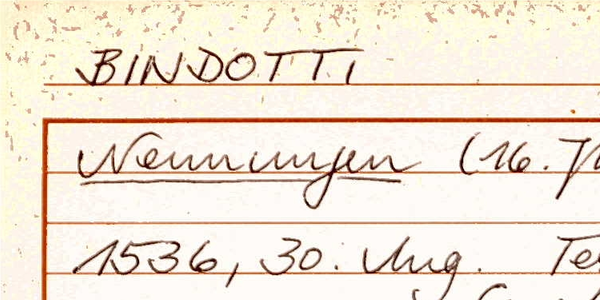 BINDOTTI
Nennungen (16.
1536, 30. Aug. Te